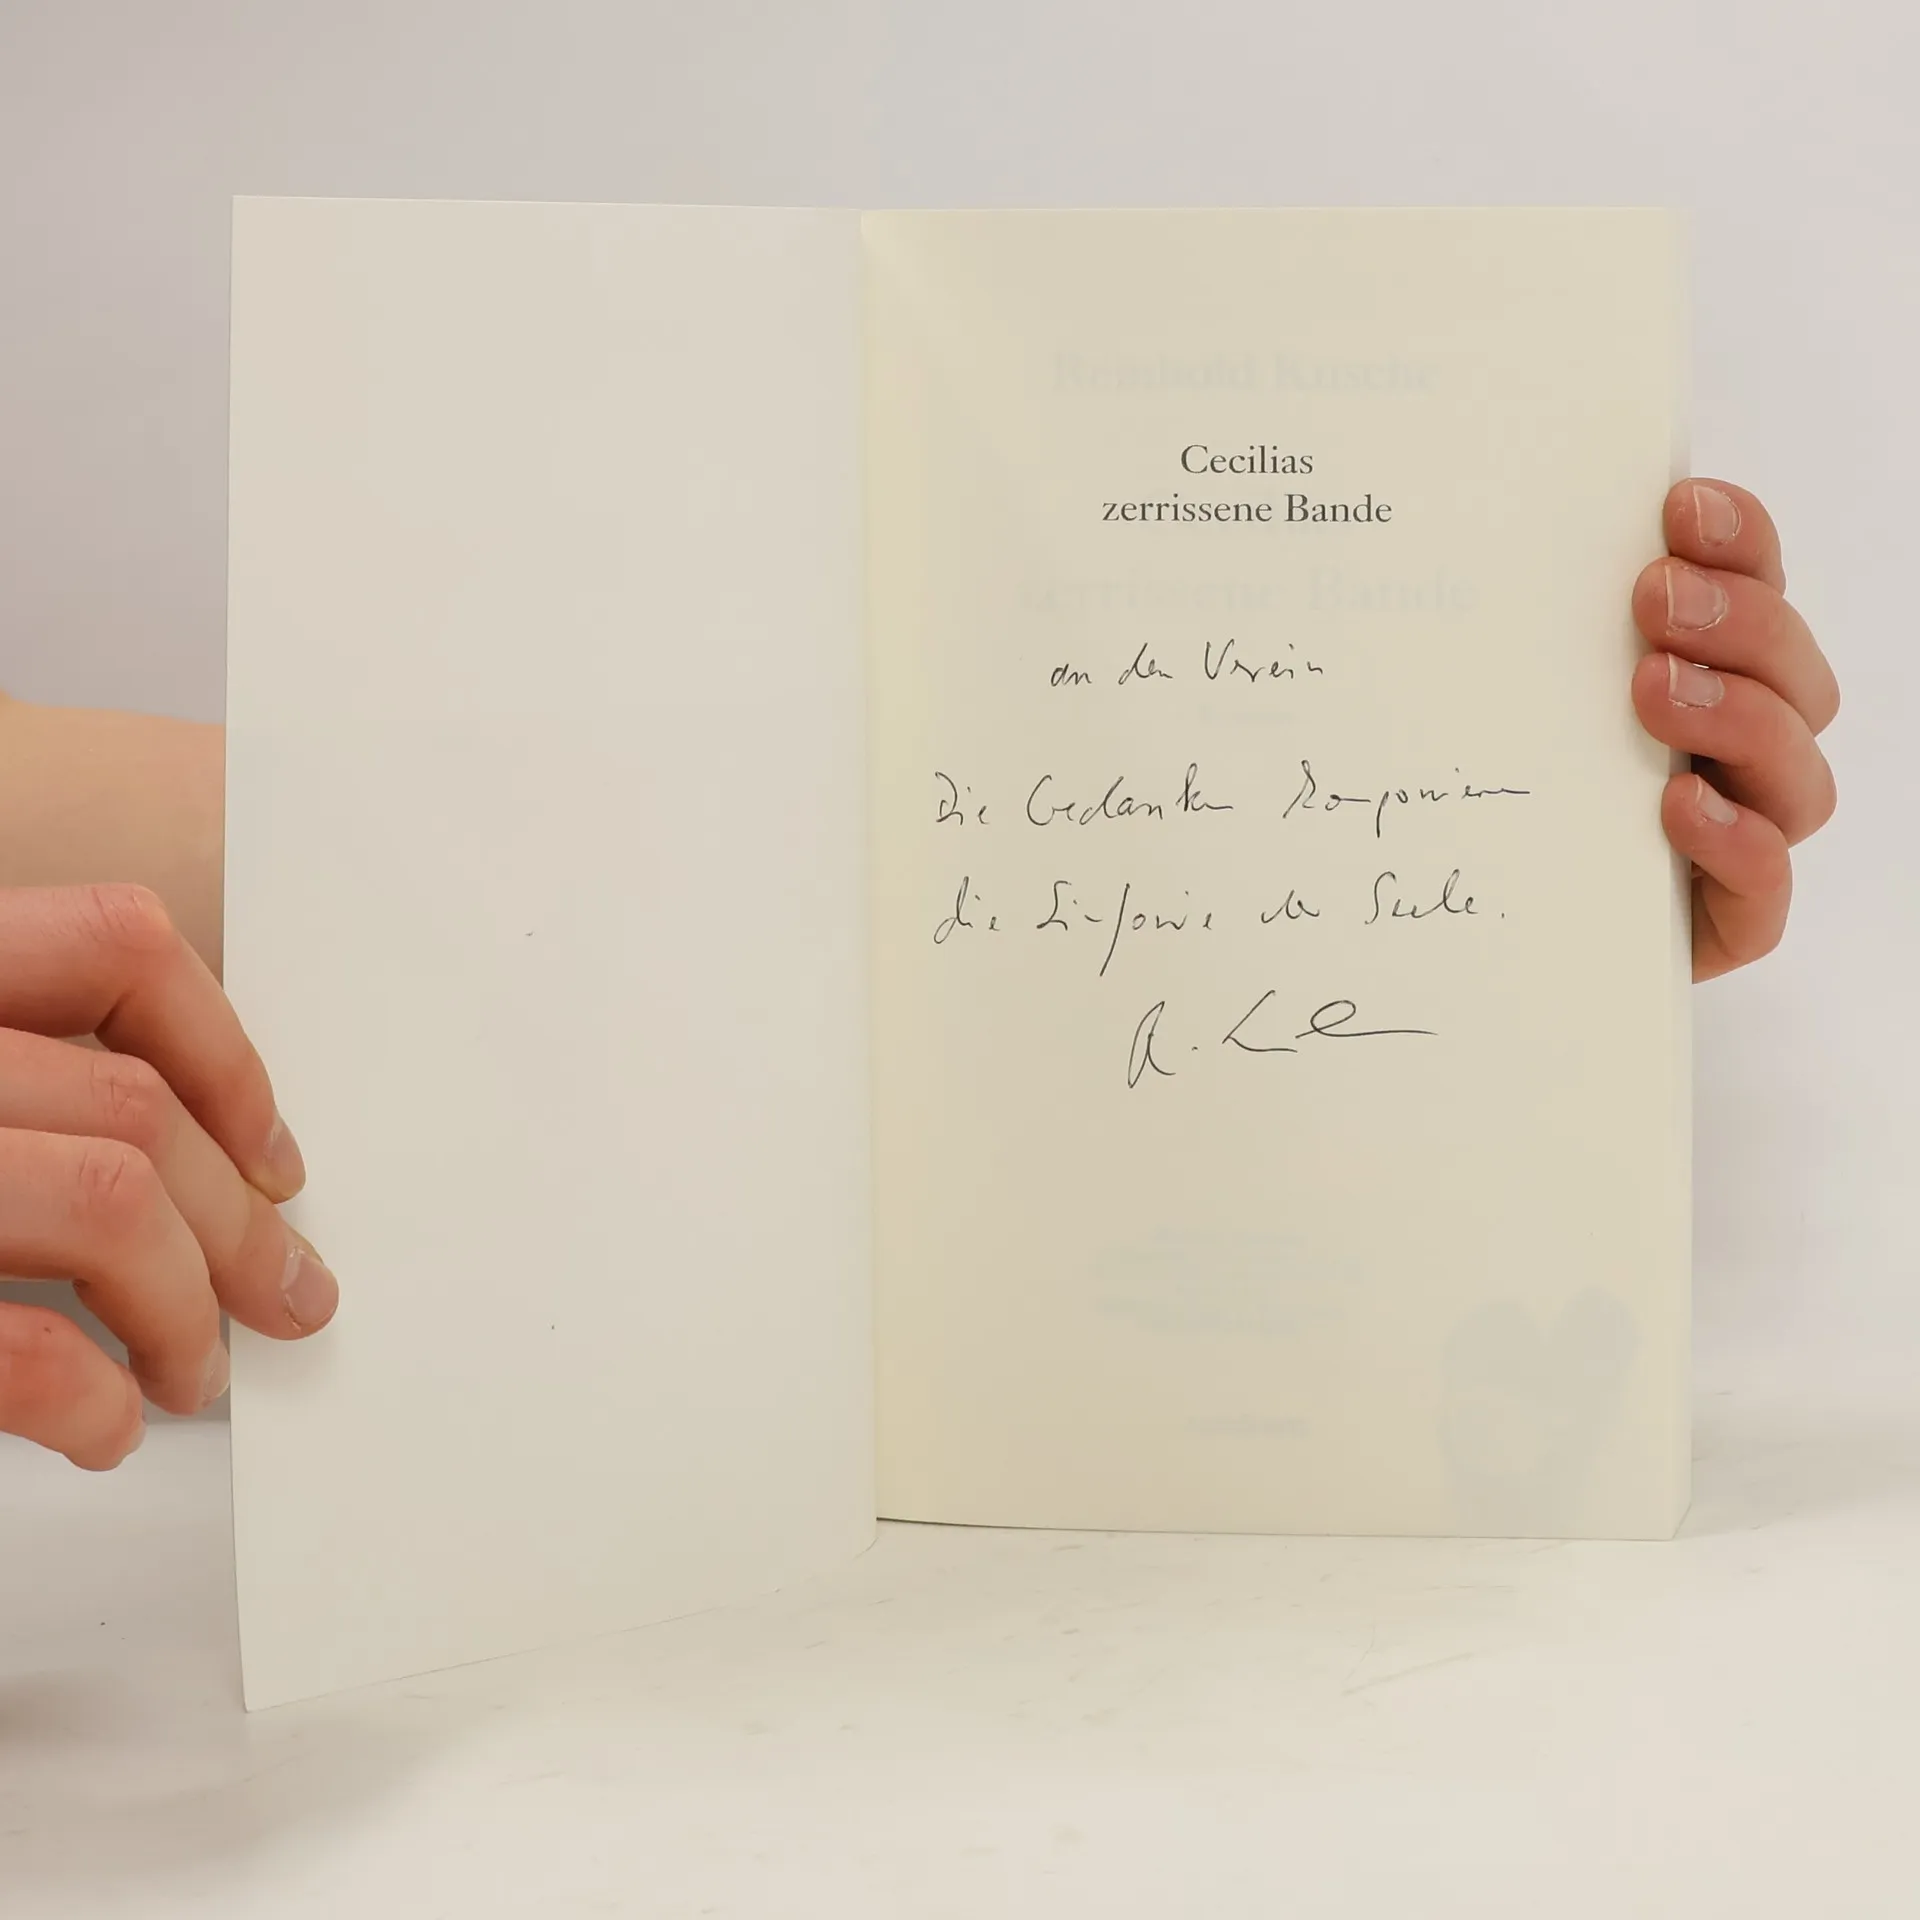 Cecilias
zerrissene Bande
an den Verein
Die Gedanken komponieren
die Sinfonie der Seele.
R.